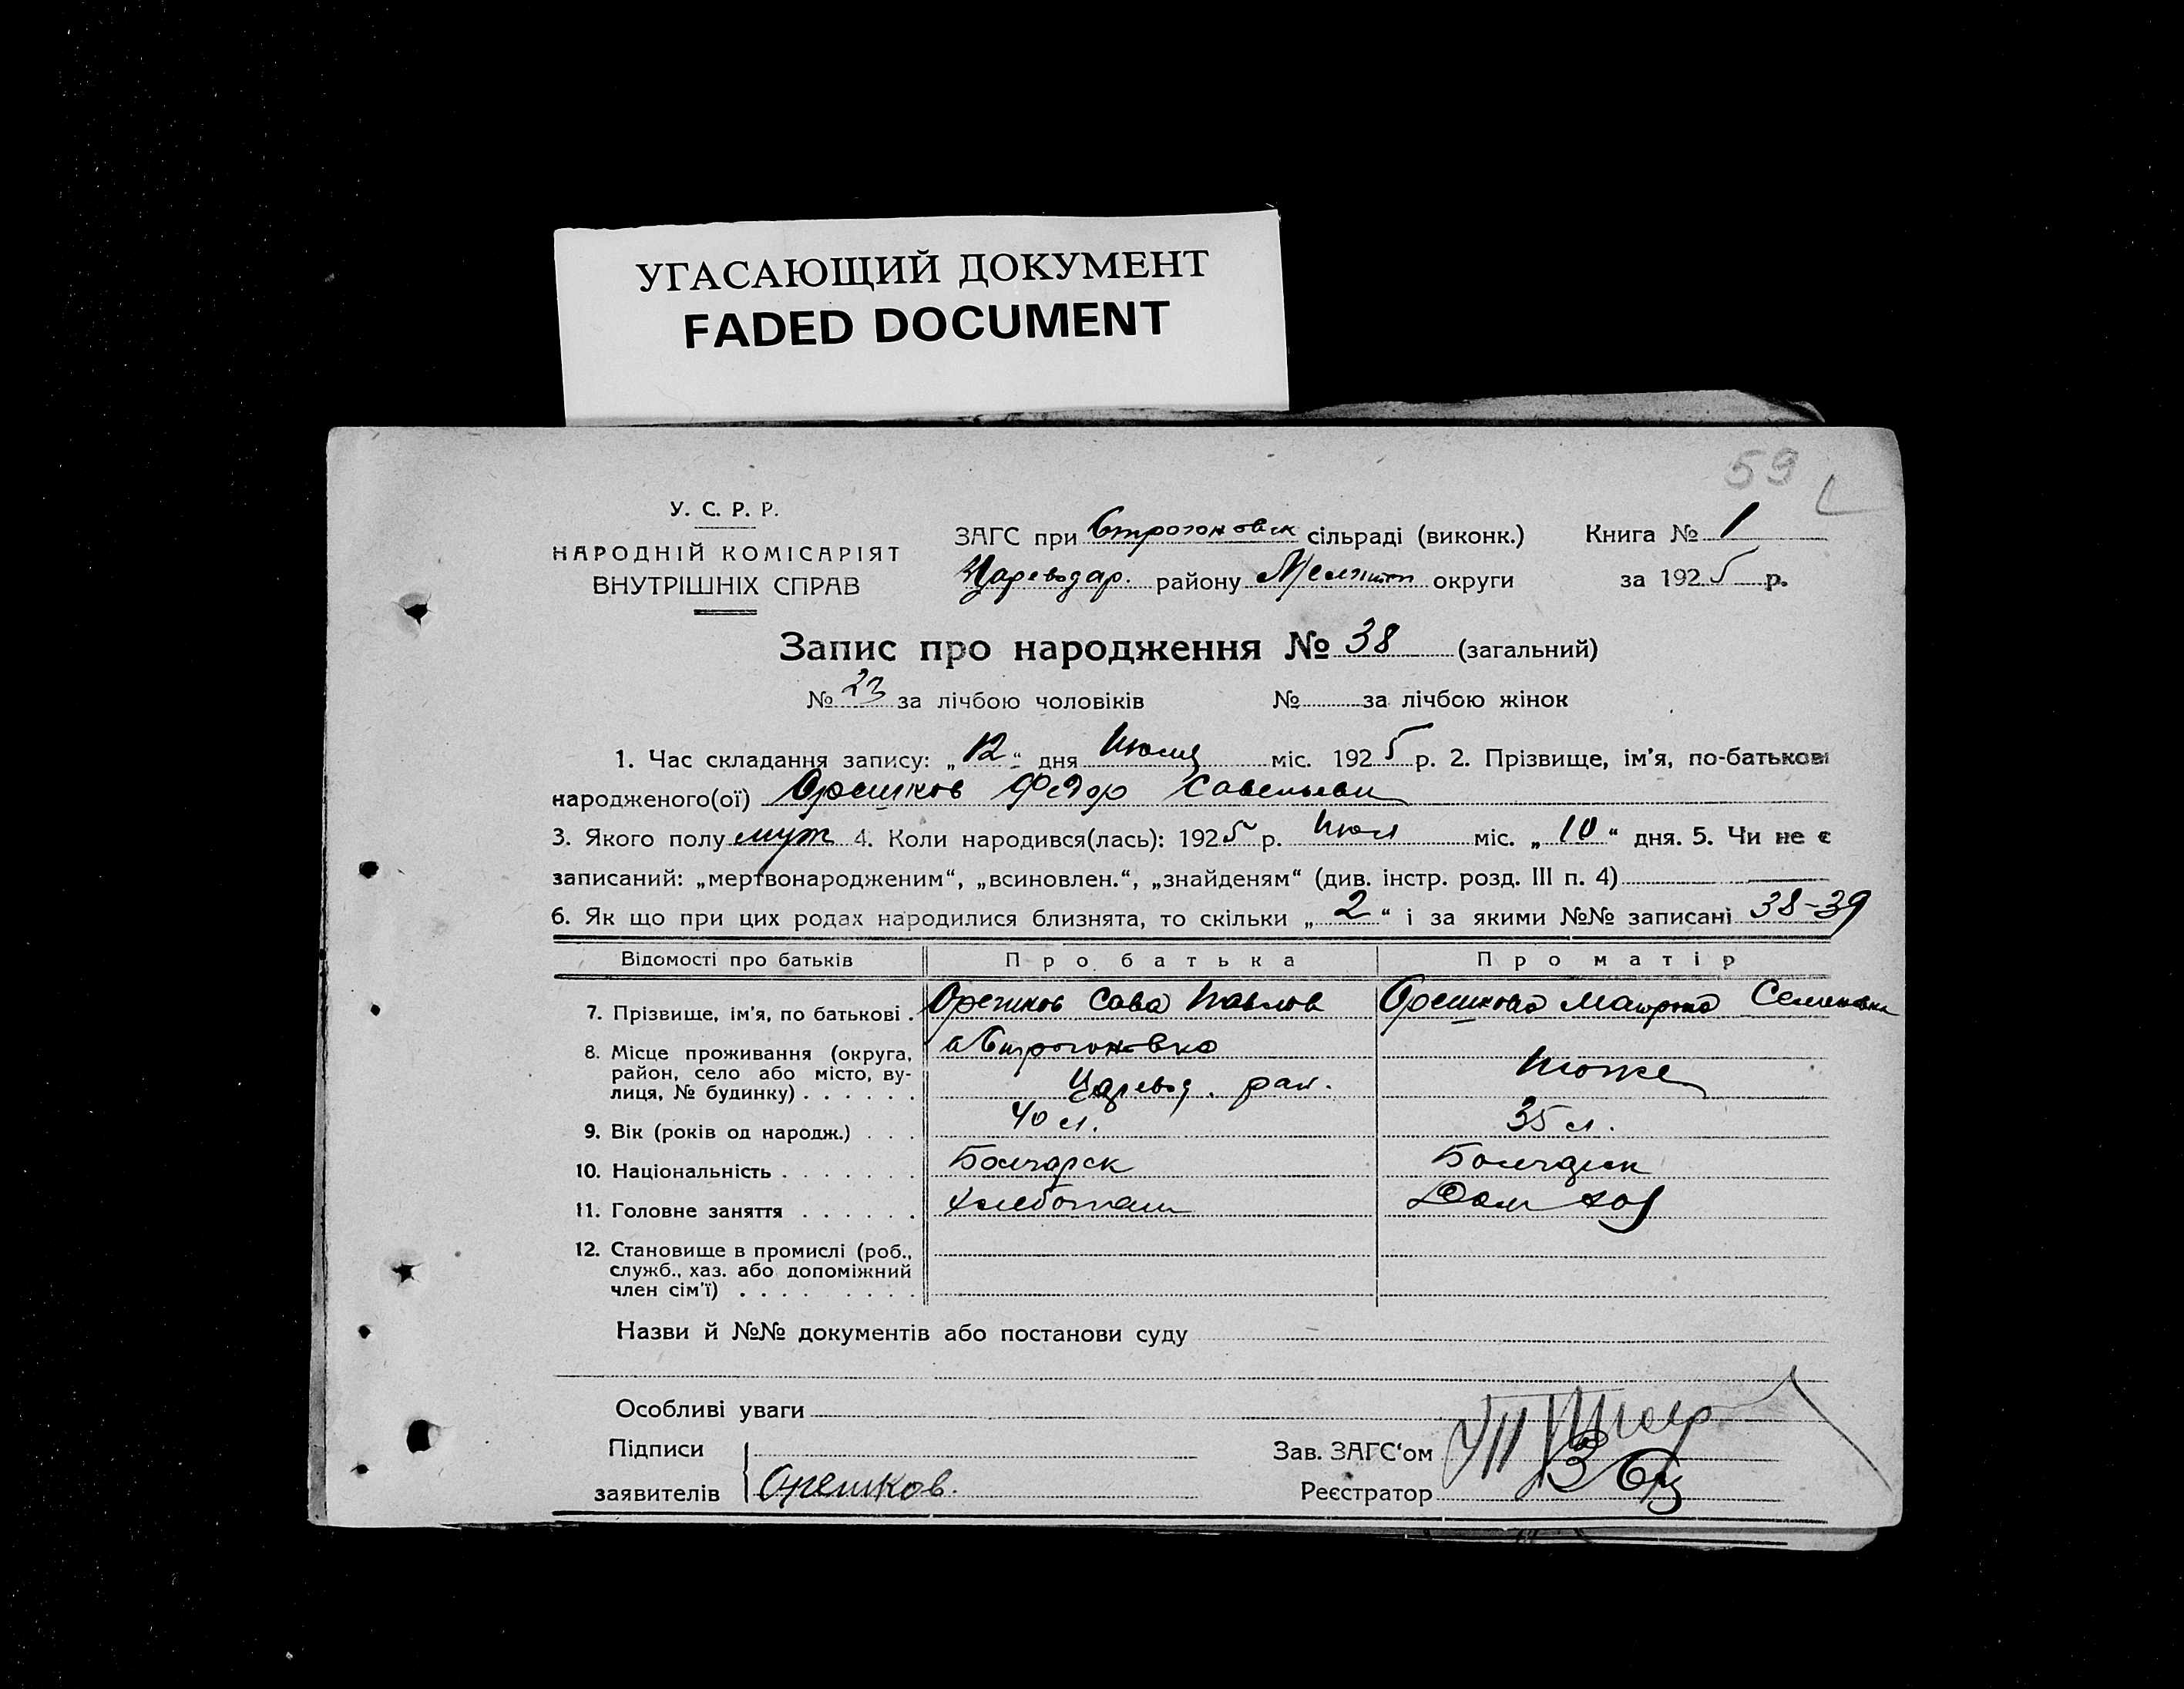 УГАСАЮЩИЙ ДОКУМЕНТ
FADED DOCUMENT
59
У. С. Р. Р.
НАРОДНІЙ КОМІСАРІЯТ
ВНУТРІШНІХ СПРАВ
ЗАГС при Строгоновск сільраді (виконк.) Книга № 1
Цареводар. району Мелит округи за 1925 р.
Запис про народження № 38 (загальний)
№ 23 за лічбою чоловіків № за лічбою жінок
1. Час складання запису: „12“ дня Июля міс. 1925 р. 2. Прізвище, ім'я, по-батькові
народженого(ої) Орешков Фёдор Савельеви
3. Якого полу муж 4. Коли народився(лась): 1925 р. Июл міс. „10“ дня. 5. Чи не є
записаний: „мертвонародженим“, „всиновлен.“, „знайденям“ (див. інстр. розд. III п. 4)
6. Як що при цих родах народилися близнята, то скільки „2“ і за якими №№ записані 38-39
Відомості про батьків Про батька Про матір
7. Прізвище, ім'я, по батькові . Орешков Сава Павлов Орешкова Матрона Семеновна
8. Місце проживання (округа, район, село або місто, вулиця, № будинку) . . . . . . Строгоновка Царевод. рай. тоже
9. Вік (років од народж.) . . . 40 л. 35 л.
10. Національність . . . . . . . Болгарск Болгарск
11. Головне заняття . . . . . . Хлебопаш Дом хоз
12. Становище в промислі (роб., служб., хаз. або допоміжний член сім'ї) . . . . . . . . .
Назви й №№ документів або постанови суду
Особливі уваги
Підписи
заявителів Орешков.
Зав. ЗАГС'ом
Реєстратор